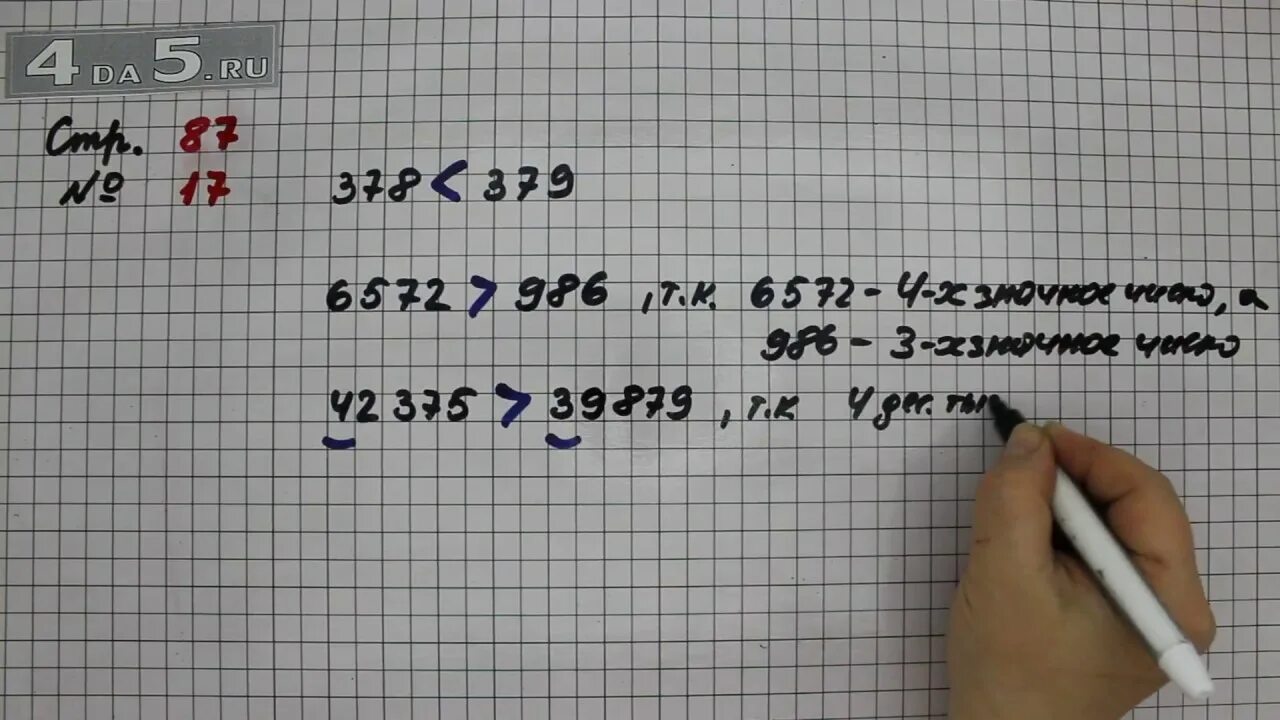 4DA5.RU
Стр. 87
№ 17
378 < 379
6572 > 986 , т.к. 6572 - 4-хзначное число, а
986 - 3-хзначное число
42 375 > 39 879 , т.к 4 дес. ты